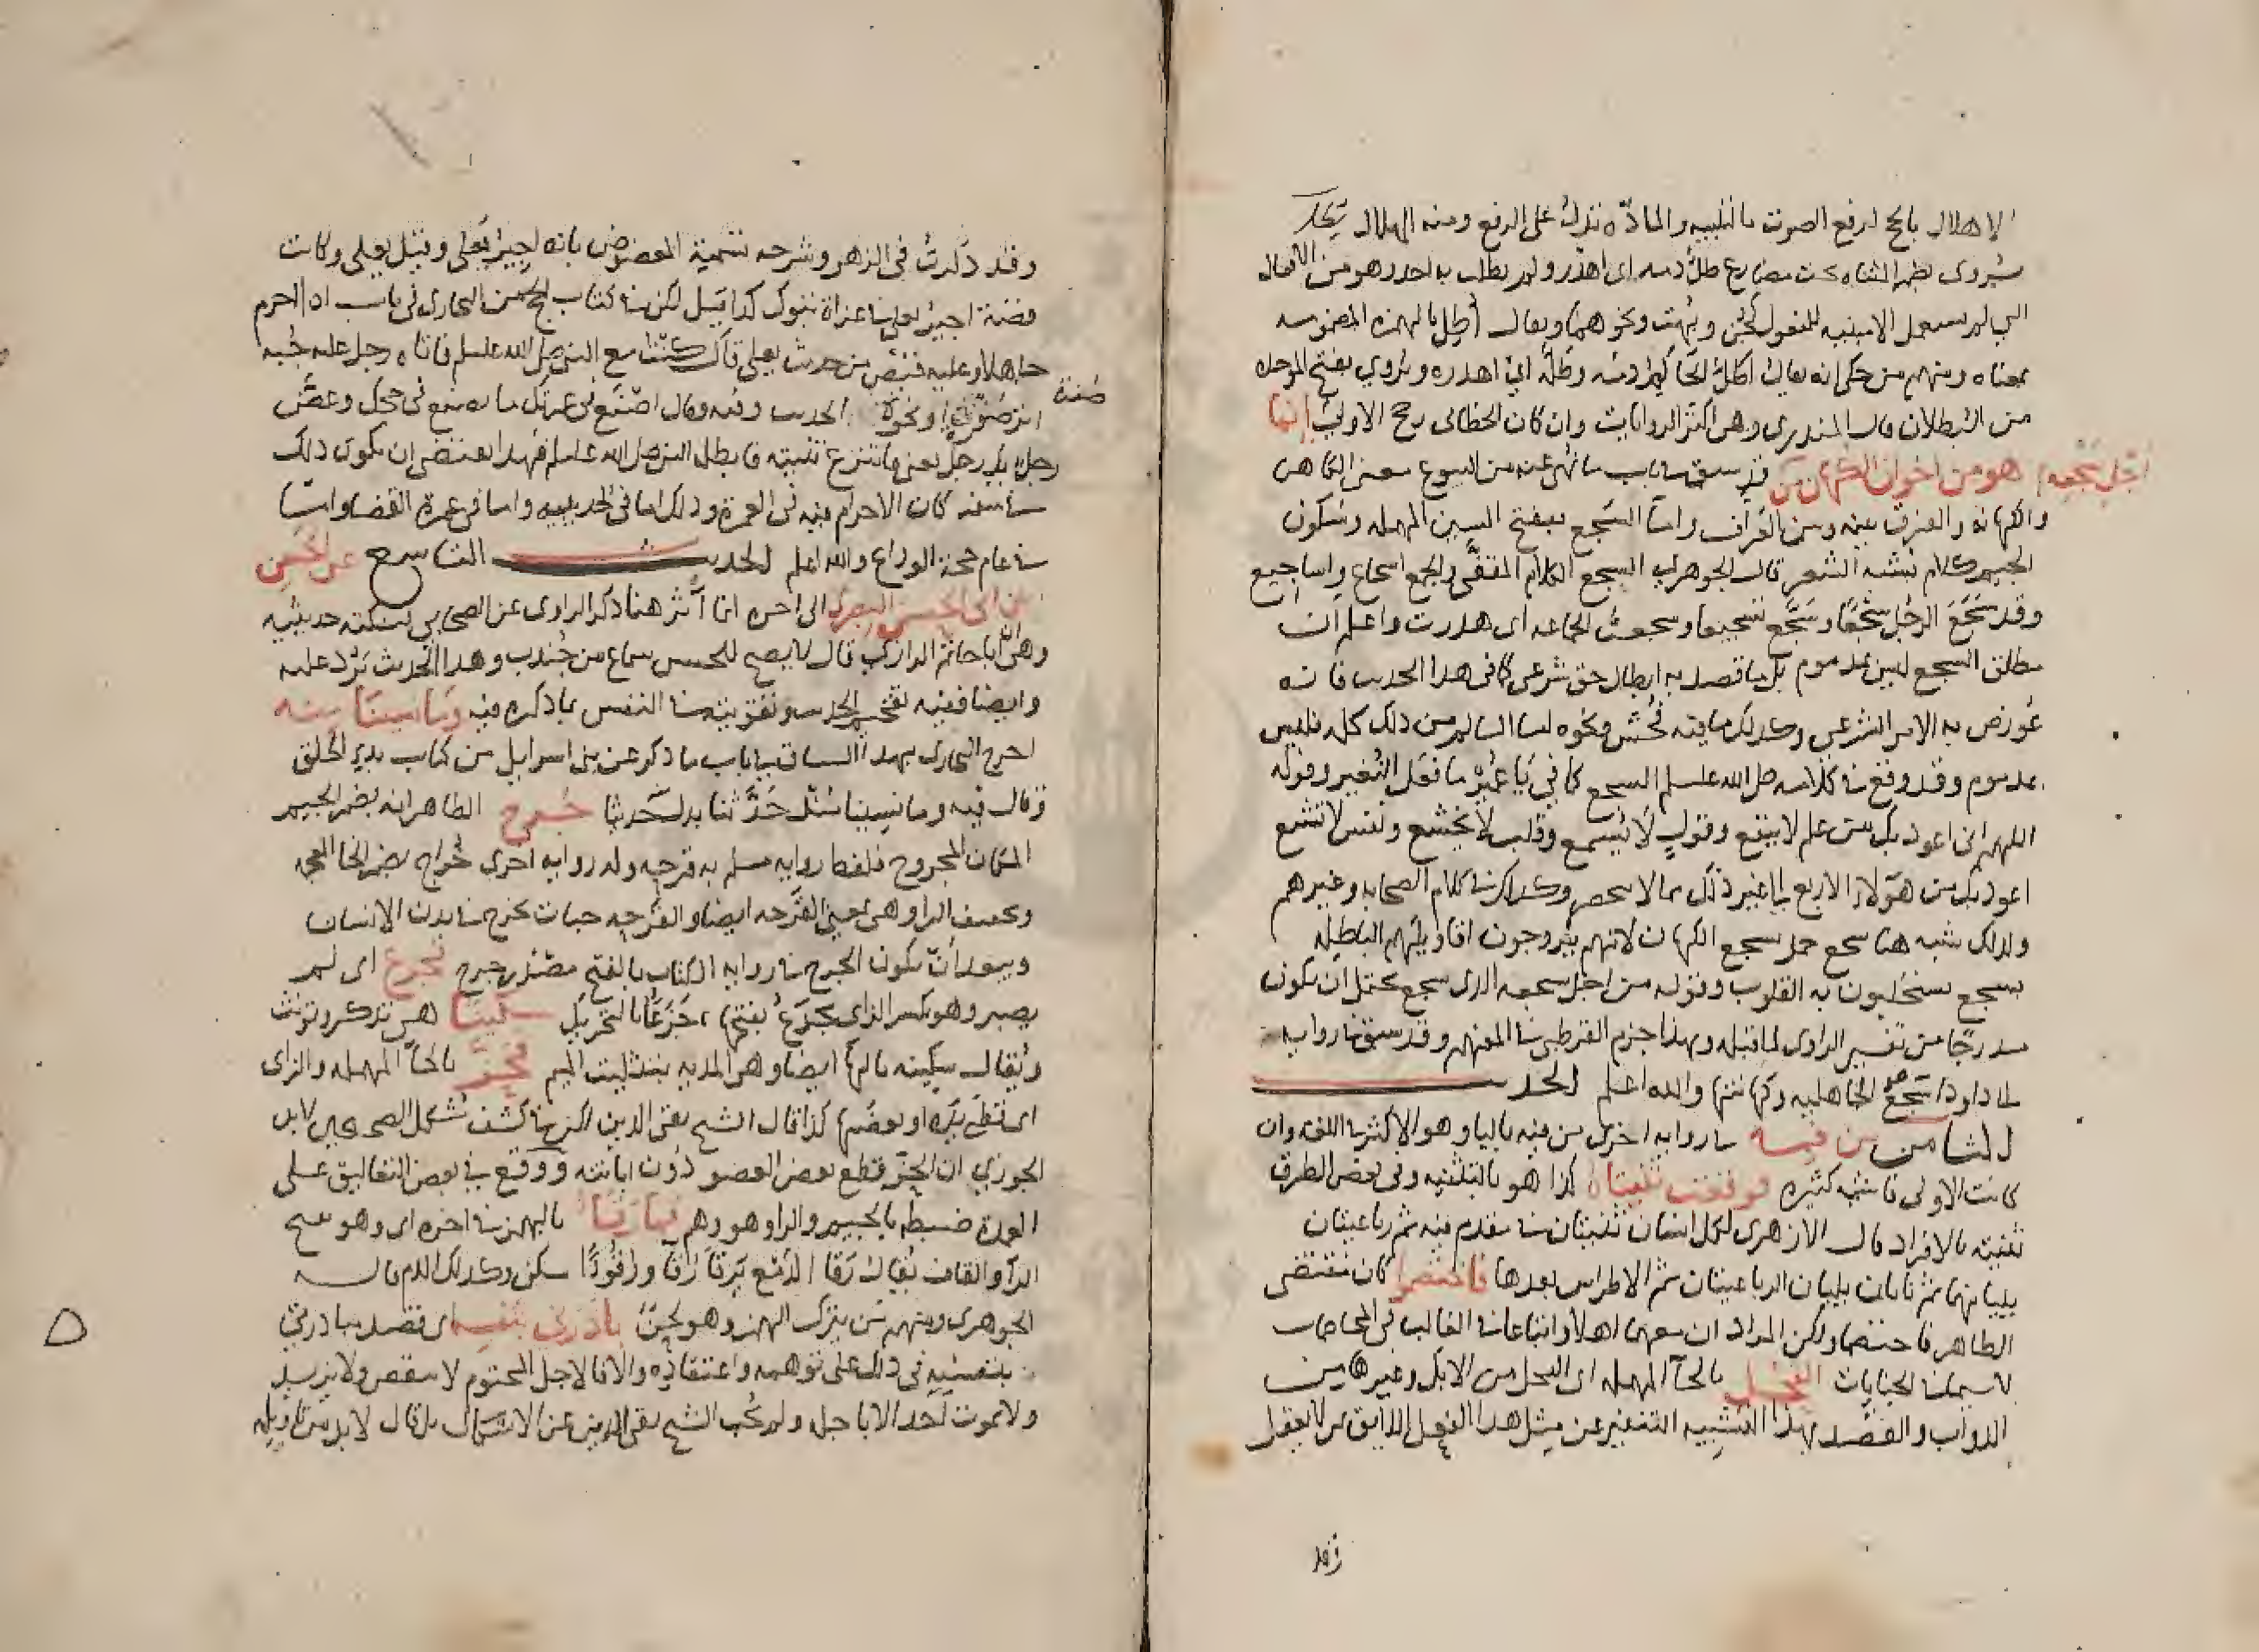 الاهلال بالحج لرفع الصوت بالتلبية والمادة تدل على الرفع ومنه الهلال يطل
يروى بضم المثناه تحت مضارع طل دمه اى اهدر ولم يطلب به احد وهو من الافعال
التي لم تستعمل الا مبنيه للمفعول كجن وبهت ونحوهما ويقال اطل بالهمزه المضمومه
بمعناه ومنهم من حكى انه يقال اطل الحاكم دمه وطله اي اهدره ويروي بفتح الموحده
من البطلان قال المنذري وهى اكثر الروايات وان كان الخطابى رجح الاولى انما
هو من اخوان الكهان من قد سبق باب ما نهى عنه من البيوع معنى الكاهن
اجل سجعه
والكهانه والفرق بينه وبين العراف واما السجع بفتح السين المهمله وسكون
الجيم كلام يشبه الشعر قال الجوهري السجع الكلام المقفى والجمع اسجاع واساجيع
وقد سجع الرجل سجعا وسجع تسجيعا وسجعت الحمامه اى هدرت واعلم ان
مطلق السجع ليس بمذموم بل ما قصد به ابطال حق شرعى كما فى هذا الحديث فانه
عورض به الامر الشرعي وكذلك ما فيه فحش ونحوه اما السالم من ذلك كله فليس
بمذموم وقد وقع فى كلامه صلى الله عليه وسلم السجع كما في يا عمير ما فعل النغير وقوله
اللهم انى اعوذ بك من علم لا ينفع وقول لا يسمع وقلب لا يخشع ونفس لا تشبع
اعوذ بك من هؤلاء الاربع الى غير ذلك مما لا ينحصر وكذلك فى كلام الصحابه وغيرهم
ولذلك شبه هنا سجع حمل بسجع الكهان لانهم يروجون اقاويلهم الباطله
بسجع يستجلبون به القلوب وقوله من اجل سجعه الذى سجع يحتمل ان يكون
مدرجا من تفسير الراوى لما قبله وبهذا جزم القرطبى فى المفهم وقد سبق فى روايه
لابى داود اسجع الجاهليه وكهانتها والله اعلم الحديث
الثامن من فيه فى روايه اخرى من فيه باليا وهو الاكثر فى اللغه وان
كانت الاولى فاشيه كثيره فوقعت ثنيتاه كذا هو بالتثنيه وفى بعض الطرق
ثنيته بالافراد قال الازهرى لكل انسان ثنيتان فى مقدم فيه ثم رباعيتان
يليانهما ثم نابان يليان الرباعيتان ثم الاضراس بعدها فاختصموا كان مقتضى
الظاهر فاختصما ولكن المراد ان معهما اهلا واتباعا فى الغالب فى المخاصمات
لا سيما فى الجنايات الفحل بالحاء المهمله اى الفحل من الابل وغيرها من
الدواب والقصد بهذا التشبيه التنفير عن مثل هذا الفعل الذى لا يليق بمن يعقل
وقد
وقد ذكرت فى الزهر وشرحه تسمية المعضوض بانه اجير يعلى وقيل يعلى وكانت
قصة اجير يعلى فى غزاة تبوك كذا قيل لكن فى كتاب الحج من البخارى فى باب اذا احرم
جاهلا وعليه قميص من حديث يعلى قال كنا مع النبي صلى الله عليه وسلم فاتاه رجل عليه جبه
اثر صفرة او نحوه الحديث وفيه وقال اصنع فى عمرتك ما تصنع فى حجك وعض
صفة
رجل يد رجل يعنى فانتزع ثنيته فابطله النبي صلى الله عليه وسلم فهذا يقتضى ان يكون ذلك
فى سنه كان الاحرام فيه فى العمرة وذلك اما فى الحديبيه واما فى عمرة القضا واما
فى عام حجة الوداع والله اعلم الحديث التاسع عن الحسن
بن ابى الحسن البصرى الى اخره انما أثر هنا ذكر الراوى عن الصحابي لنكته حديثيه
وهى ان ابا حاتم الرازي قال لا يصح للحسن سماع من جندب وهذا الحديث يرد عليه
وايضا ففيه تفخيم الحديث وتقويته فى النفس بما ذكره فيه وما نسينا منه
اخرج البخارى بهذا السياق فى باب ما ذكر عن بنى اسرايل من كتاب بدء الخلق
وقال فيه وما نسينا منذ حدثنا بدل حديثا جرح الظاهر انه بضم الجيم
المكان المجروح فلفظ روايه مسلم به قرحه وله روايه اخرى خراج بضم الخا المعجمه
وتخفيف الراء وهى بمعنى القرحه ايضا والقرحه حبات تخرج فى بدن الانسان
ويبعد ان يكون الجرح فى روايه الكتاب بالفتح مصدر جرح فجزع اى لم
يصبر وهو بكسر الزاى يجزع بفتحها جزعا بالتحريك سكينا هى تذكر وتونث
ويقال سكينه بالهاء ايضا وهى المديه بتثليث الميم فحز بالحاء المهمله والزاى
اى قطع يده او بعضها كذا قال الشيخ تقى الدين لكن فى كشف مشكل الصحيحين لابن
الجوزي ان الحز قطع بعض العضو دون ابانته ووقع في بعض التعاليق على
العمدة ضبطه بالجيم والراء وهو وهم فما رقأ بالهمز فى اخره اى وهو بفتح
الراء والقاف يقال رقا الدمع يرقا رقا ورقوءا سكن وكذلك الدم قاله
الجوهرى ومنهم من يترك الهمز وهو لحن بادرنى بنفسه اى قصد مبادرتى
بنفسه فى ذلك على توهمه واعتقاده والا فالاجل المحتوم لا ينقص ولا يزيد
ولا يموت احد الا باجل ولم يجب الشيخ تقى الدين عن الاشكال بل قال لا بد من تاويله